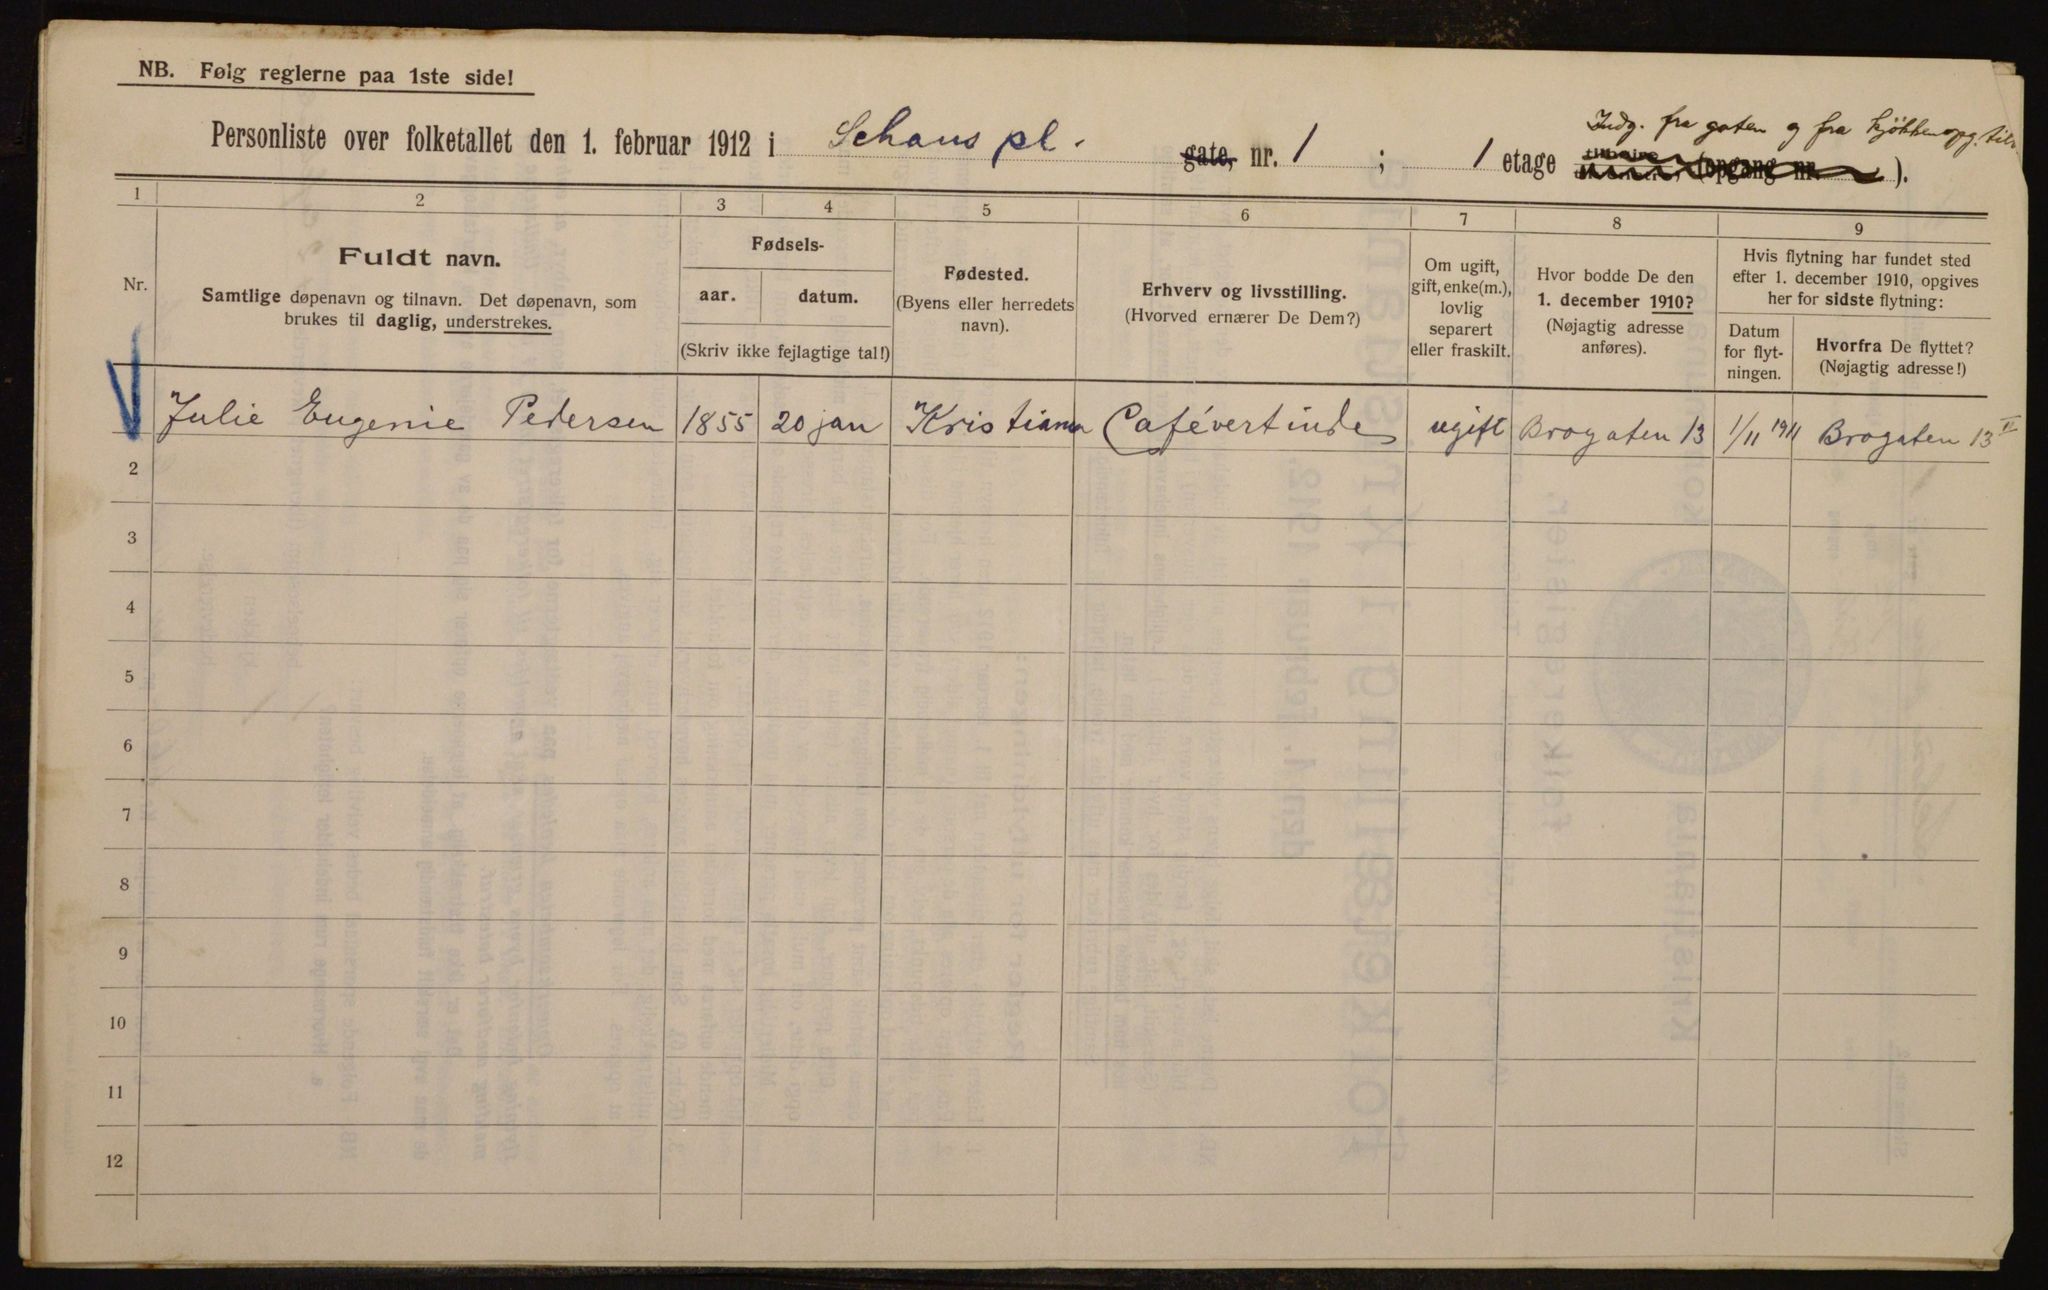 NB. Følg reglerne paa 1ste side!
Indg. fra gaten og fra kjøkkenopg. til
Personliste over folketallet den 1. februar 1912 i Schaus pl. gate, nr. 1 ; 1 etage tilhøire (opgang nr. ).
1 2 3 4 5 6 7 8 9
Nr.
Fuldt navn.
Samtlige døpenavn og tilnavn. Det døpenavn, som
brukes til daglig, understrekes.
Fødsels-
aar. datum.
(Skriv ikke fejlagtige tal!)
Fødested.
(Byens eller herredets
navn).
Erhverv og livsstilling.
(Hvorved ernærer De Dem?)
Om ugift,
gift, enke(m.),
lovlig
separert
eller fraskilt.
Hvor bodde De den
1. december 1910?
(Nøjagtig adresse
anføres).
Hvis flytning har fundet sted
efter 1. december 1910, opgives
her for sidste flytning:
Datum
for flyt-
ningen.
Hvorfra De flyttet?
(Nøjagtig adresse!)
Julie Eugenie Pedersen 1855 20 jan Kristiania Cafévertinde ugift Brogaten 13 1/11 1911 Brogaten 13 II
2
3
4
5
6
7
8
9
10
11
12